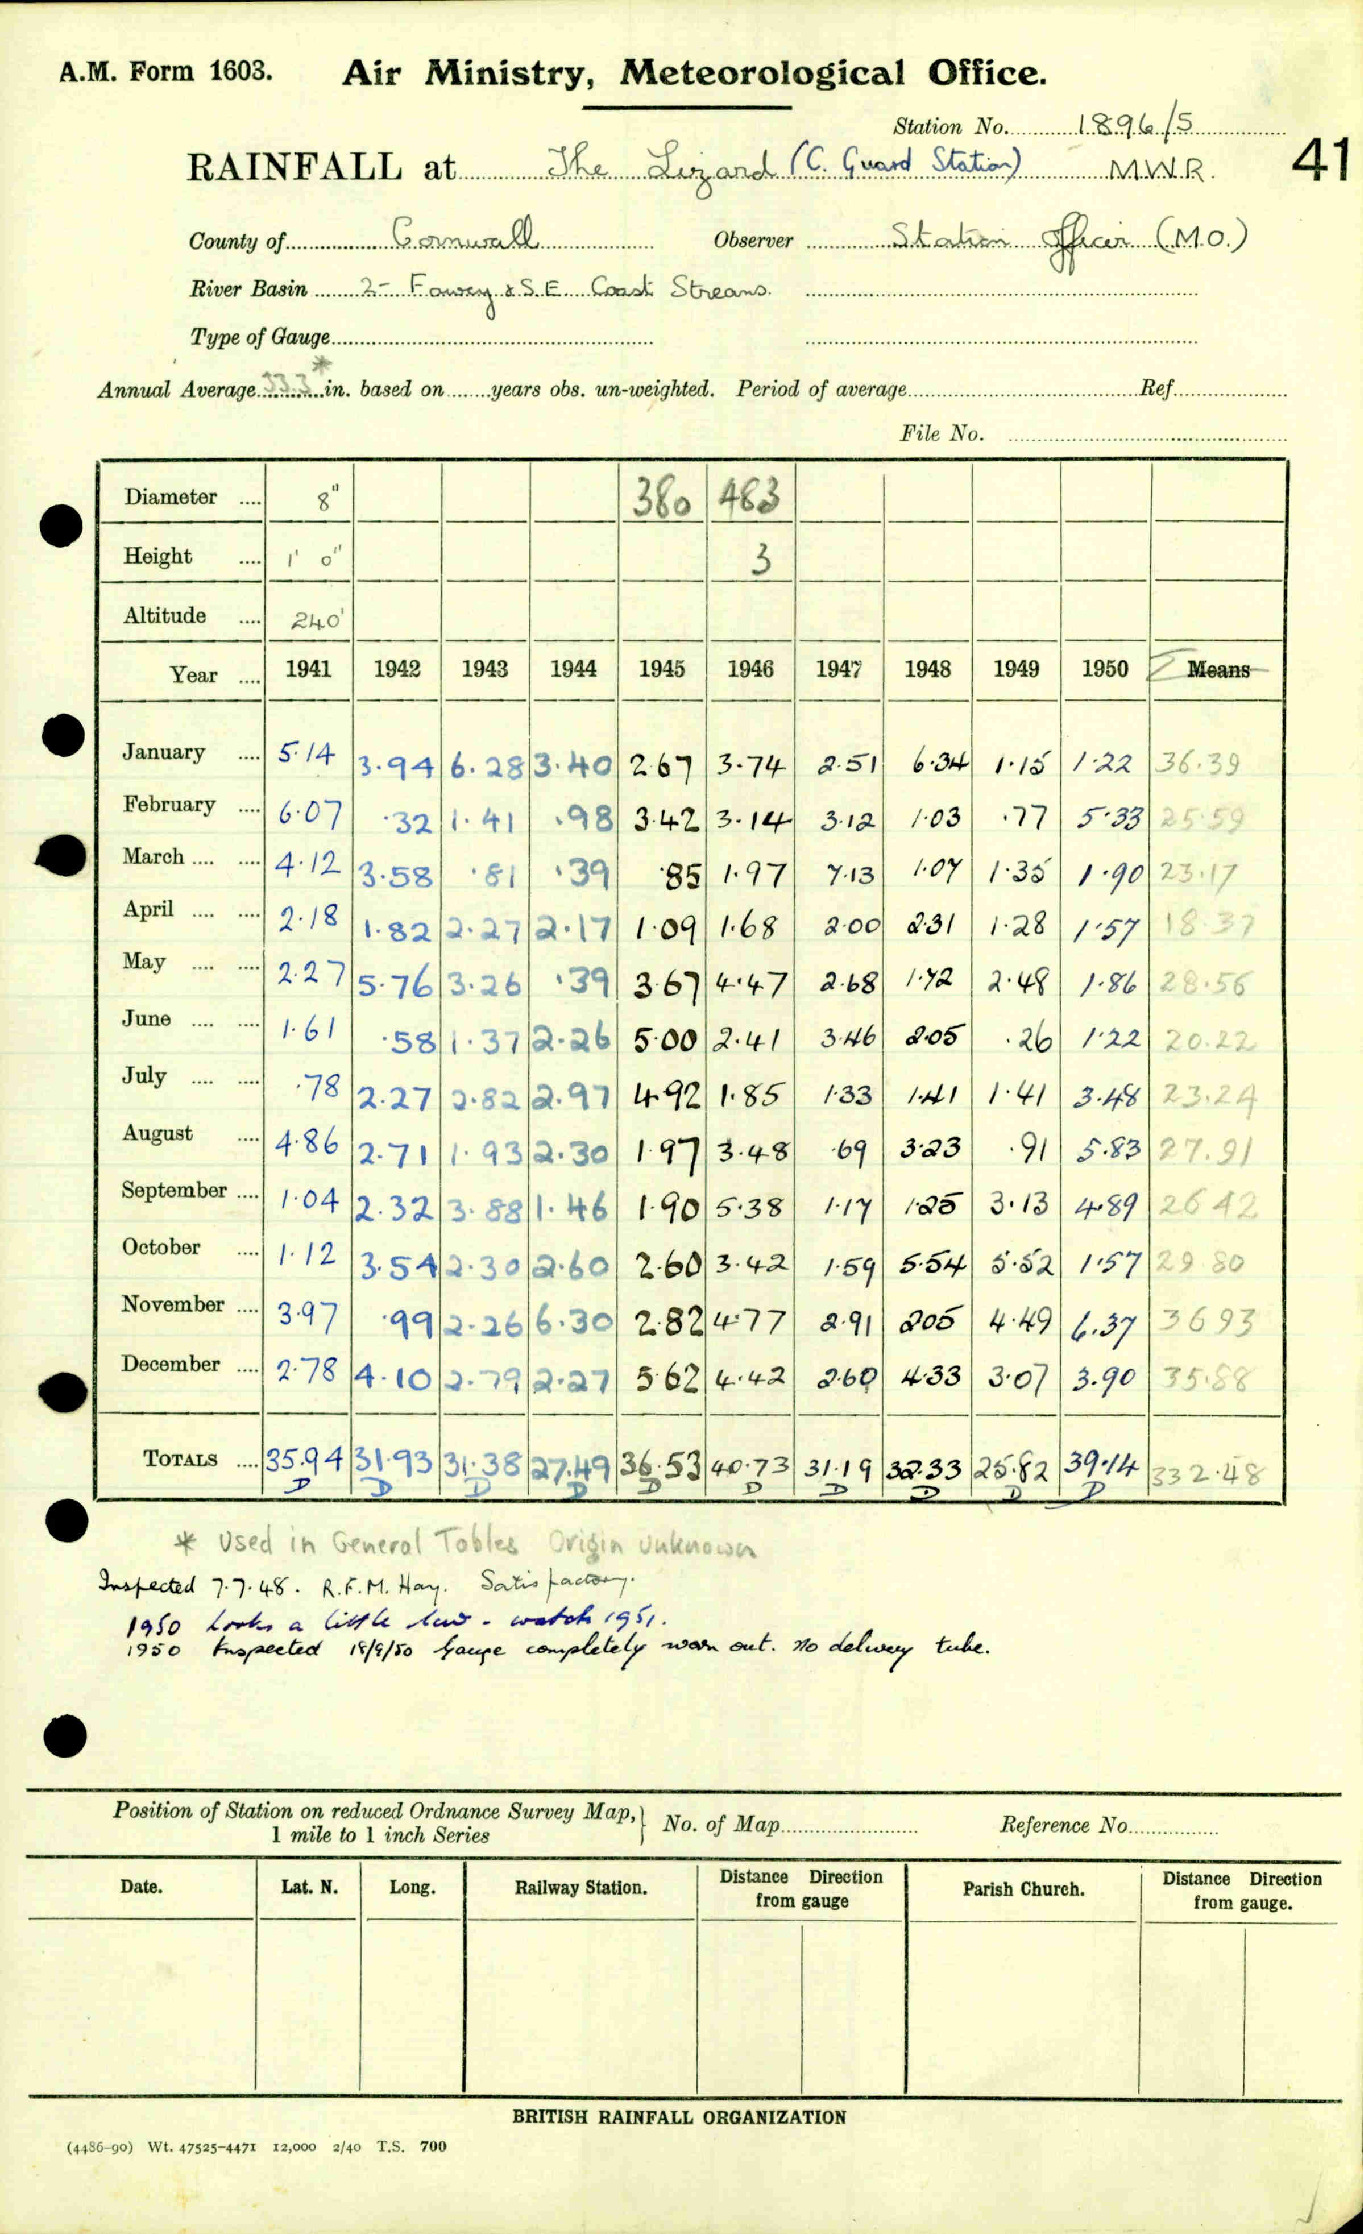 A.M. Form 1603. Air Ministry, Meteorological Office.
Station No. 1896/5
RAINFALL at The Lizard (C. Guard Station) MWR. 41
County of Cornwall Observer Station Officer (M.O.)
River Basin 2- Fowey & S.E. Coast Streams.
Type of Gauge
Annual Average 33.3* in. based on years obs. un-weighted. Period of average Ref.
File No.
Diameter .... 8" 380 483
Height .... 1' 0" 3
Altitude .... 240'
Year .... 1941 1942 1943 1944 1945 1946 1947 1948 1949 1950 Σ Means
January .... 5.14 3.94 6.28 3.40 2.67 3.74 2.51 6.34 1.15 1.22 36.39
February .... 6.07 .32 1.41 .98 3.42 3.14 3.12 1.03 .77 5.33 25.59
March .... .... 4.12 3.58 .81 .39 .85 1.97 7.13 1.07 1.35 1.90 23.17
April .... .... 2.18 1.82 2.27 2.17 1.09 1.68 2.00 2.31 1.28 1.57 18.37
May .... .... 2.27 5.76 3.26 .39 3.67 4.47 2.68 1.72 2.48 1.86 28.56
June .... .... 1.61 .58 1.37 2.26 5.00 2.41 3.46 2.05 .26 1.22 20.22
July .... .... .78 2.27 2.82 2.97 4.92 1.85 1.33 1.41 1.41 3.48 23.24
August .... 4.86 2.71 1.93 2.30 1.97 3.48 .69 3.23 .91 5.83 27.91
September .... 1.04 2.32 3.88 1.46 1.90 5.38 1.17 1.25 3.13 4.89 26 42
October .... 1.12 3.54 2.30 2.60 2.60 3.42 1.59 5.54 5.52 1.57 29.80
November .... 3.97 .99 2.26 6.30 2.82 4.77 2.91 205 4.49 6.37 36 93
December .... 2.78 4.10 2.79 2.27 5.62 4.42 2.60 4.33 3.07 3.90 35.88
TOTALS .... 35.94 31.93 31.38 27.49 36.53 40.73 31.19 32.33 25.82 39.14 332.48
D D D D D D D D D D
* Used in General Tables Origin unknown
Inspected 7.7.48. R.F.M. Hay. Satisfactory.
1950 looks a little low - watch 1951.
1950 Inspected 18/9/50 Gauge completely worn out. No delivery tube.
Position of Station on reduced Ordnance Survey Map, } No. of Map Reference No.
1 mile to 1 inch Series
Date. Lat. N. Long. Railway Station. Distance Direction from gauge Parish Church. Distance Direction from gauge.
BRITISH RAINFALL ORGANIZATION
(4486-90) Wt. 47525-4471 12,000 2/40 T.S. 700